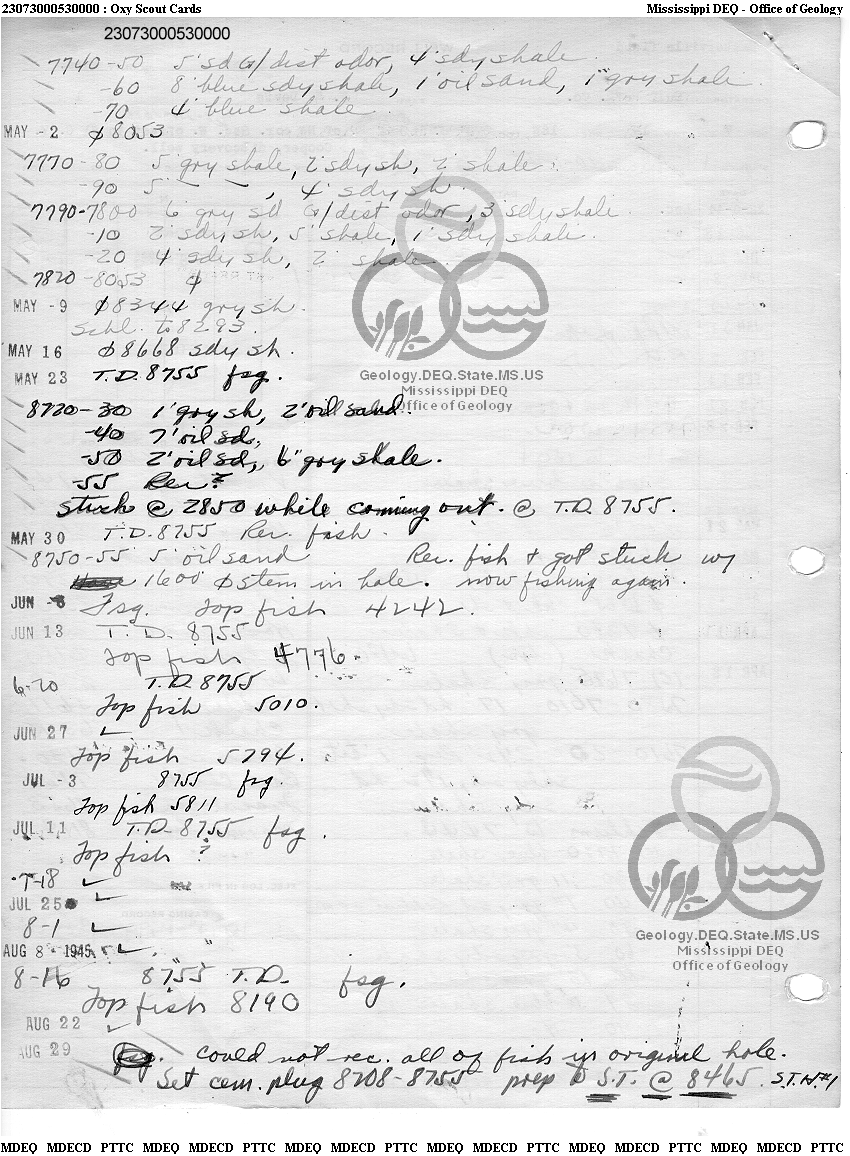 23073000530000 : Oxy Scout Cards Mississippi DEQ - Office of Geology
23073000530000
7740-50 5' sd G/dist odor, 4' sdy shale
-60 8' blue sdy shale, 1' oil sand, 1' gry shale
-70 4' blue shale
MAY -2 ϕ 8053
7770-80 5' gry shale, 2' sdy sh, 2' shale.
-90 5' — —, 4' sdy sh.
7790-7800 6' gry sd G/dist odor, 3' sdy shale
-10 2' sdy sh, 5' shale, 1' sdy shale.
-20 4' sdy sh, 2' shale.
7820-8053 ϕ
MAY -9 ϕ 8344 gry sh.
Schl. to 8293.
MAY 16 ϕ 8668 sdy sh.
MAY 23 T.D. 8755 fsg.
Geology.DEQ.State.MS.US
Mississippi DEQ
Office of Geology
8720-30 1' gry sh, 2' oil sand.
-40 7' oil sd,
-50 2' oil sd, 6" gry shale.
-55 Rec?
Stuck @ 2850 while coming out. @ T.D. 8755.
MAY 30 T.D. 8755 Rec. fish.
8750-55 5' oil sand Rec. fish & got stuck w/
1600' ϕ stem in hole. now fishing again.
JUN -6 Fsg. Top fish 4242.
JUN 13 T.D. 8755
Top fish 4776.
6-20 T.D. 8755
Top fish 5010.
JUN 27 ✓
Top fish 5794.
JUL -3 8755 fsg.
Top fish 5811
JUL 11 T.D. 8755 fsg.
Top fish ?
7-18 ✓
JUL 25 ✓
8-1 ✓
AUG 8 1945 ✓
Geology.DEQ.State.MS.US
Mississippi DEQ
Office of Geology
8-16 8755 T.D. fsg.
Top fish 8190
AUG 22 ✓
AUG 29 fsg. Could not rec. all of fish in original hole.
Set cem. plug 8208-8755 prep to S.T. @ 8465. S.T.H.#1
MDEQ MDECD PTTC MDEQ MDECD PTTC MDEQ MDECD PTTC MDEQ MDECD PTTC MDEQ MDECD PTTC MDEQ MDECD PTTC